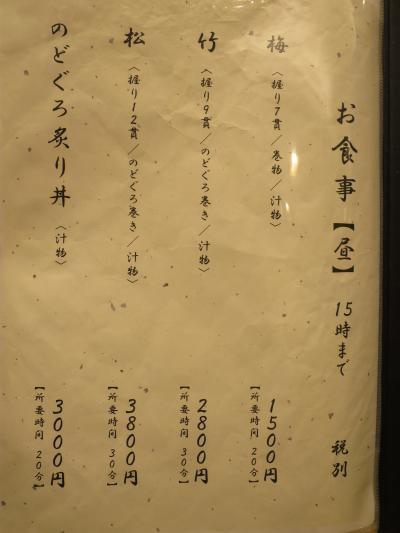 お食事【昼】 15時まで 税別
梅 〈握り7貫／巻物／汁物〉 1500円
【所要時間 20分】
竹 〈握り9貫／のどぐろ巻き／汁物〉 2800円
【所要時間 30分】
松 〈握り12貫／のどぐろ巻き／汁物〉 3800円
【所要時間 30分】
のどぐろ炙り丼 〈汁物〉 3000円
【所要時間 20分】